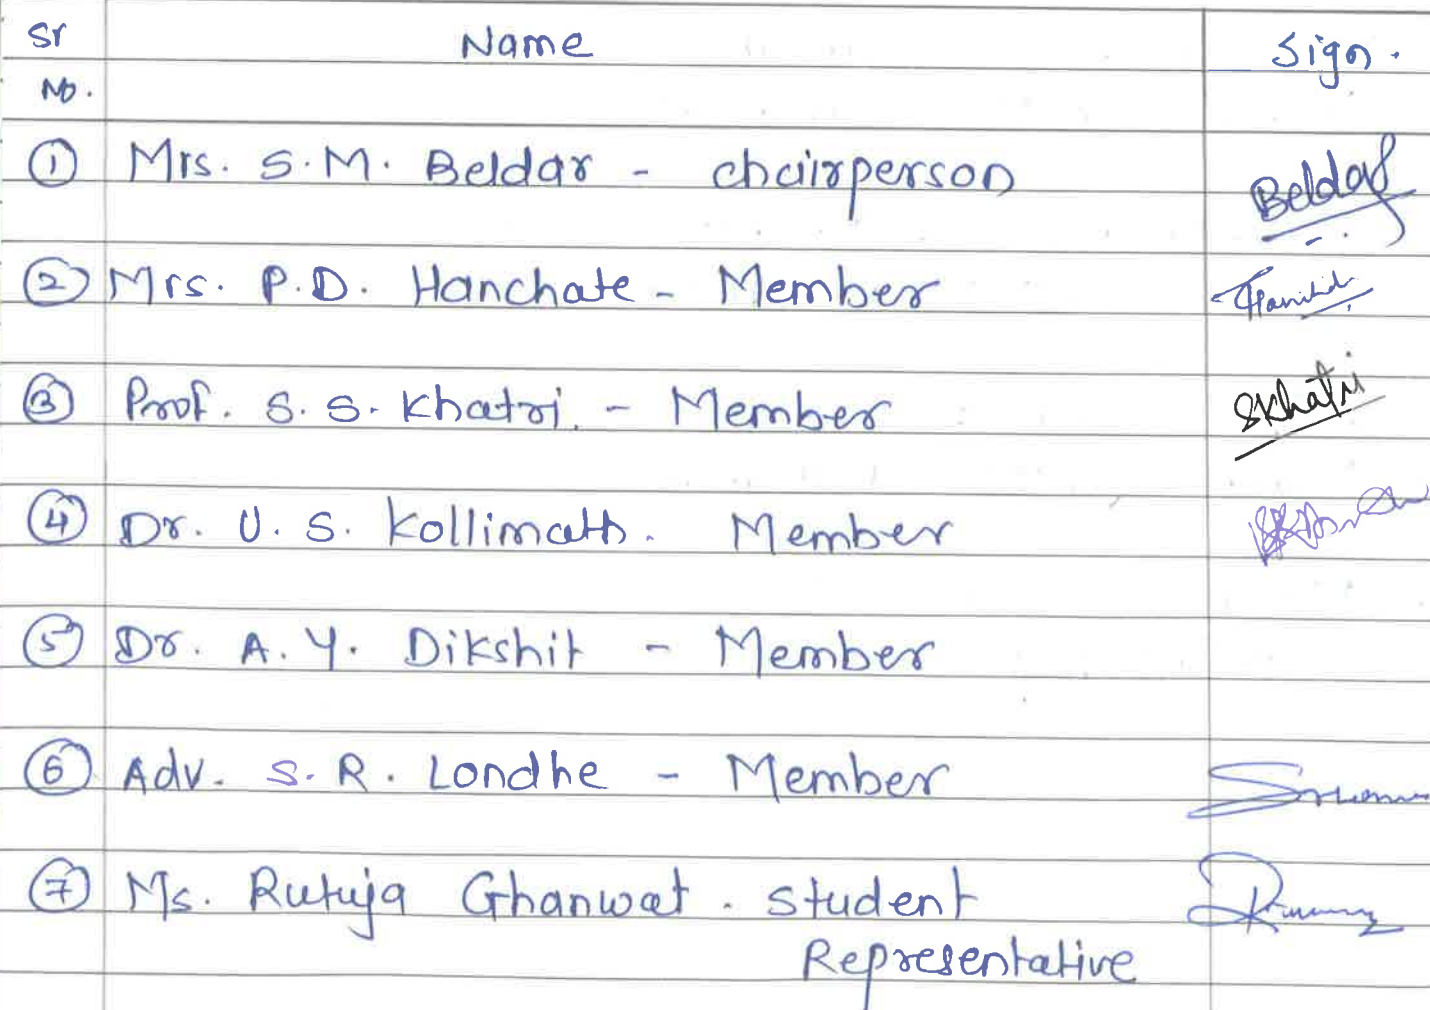 Sr Name Sign.
No.
① Mrs. S.M. Beldar - chairperson Beldar
② Mrs. P.D. Hanchate - Member
③ Prof. S. S. Khatri - Member SKhatri
④ Dr. U. S. Kollimath. Member
⑤ Dr. A. Y. Dikshit - Member
⑥ Adv. S. R. Londhe - Member
⑦ Ms. Rutuja Ghanwat. student
Representative